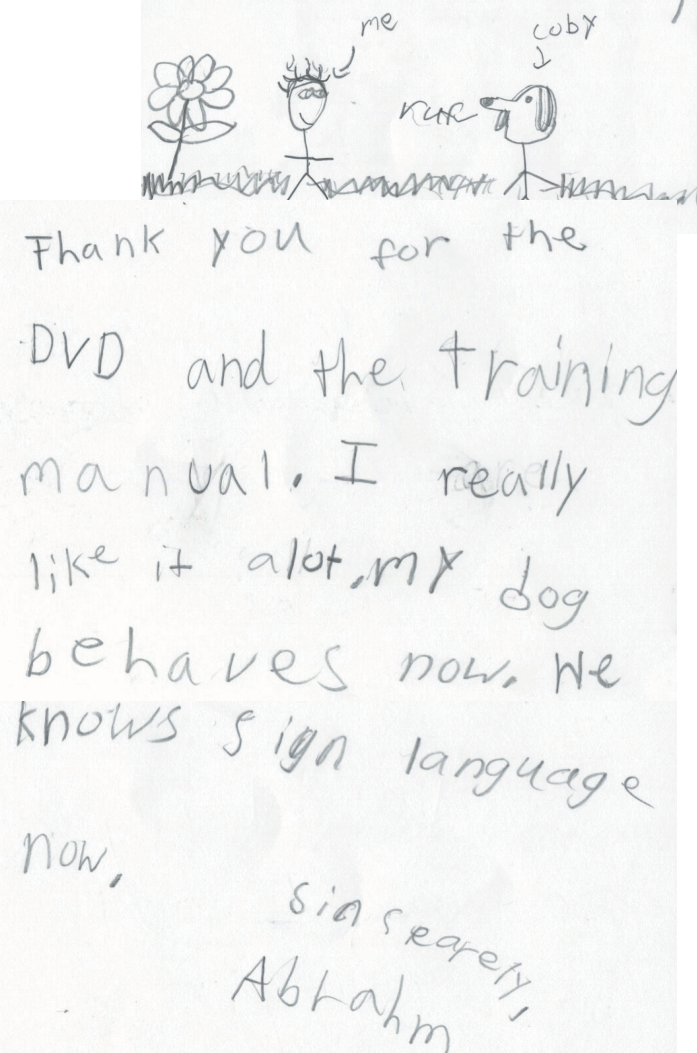 me
coby
ruf
Thank you for the
DVD and the training
manual. I really
like it alot. my dog
behaves now. He
knows sign language
now.
sinsearely,
Abrahm